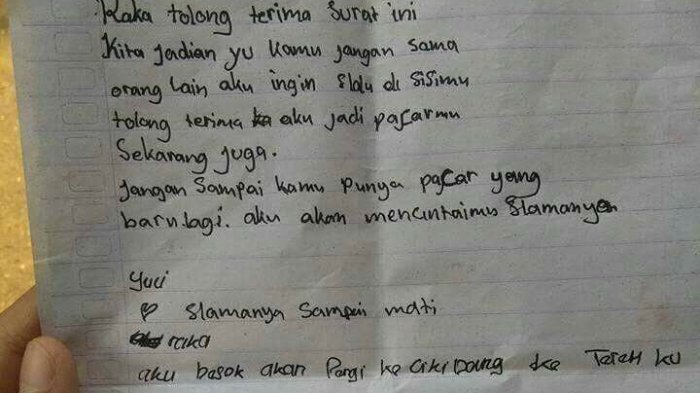 Raka tolong terima surat ini
Kita jadian yu kamu jangan sama
orang lain aku ingin slalu di sisimu
tolong terima aku jadi pacarmu
Sekarang juga.
jangan sampai kamu punya pacar yang
baru lagi. aku akan mencintaimu slamanya
Yuci
♡ slamanya sampai mati
raka
aku besok akan Pargi ke